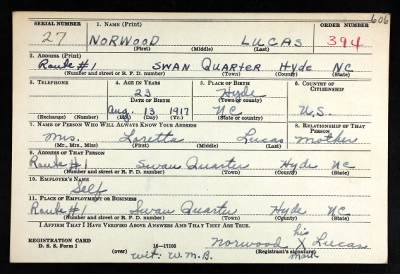 606
SERIAL NUMBER 1. NAME (Print) ORDER NUMBER
27 NORWOOD LUCAS 394
(First) (Middle) (Last)
2. ADDRESS (Print)
Route #1 SWAN QUARTER Hyde NC
(Number and street or R. F. D. number) (Town) (County) (State)
3. TELEPHONE 4. AGE IN YEARS 5. PLACE OF BIRTH 6. COUNTRY OF CITIZENSHIP
23 Hyde
DATE OF BIRTH (Town or county)
Aug. 13 1917 NC U.S.
(Exchange) (Number) (Mo.) (Day) (Yr.) (State or country)
7. NAME OF PERSON WHO WILL ALWAYS KNOW YOUR ADDRESS 8. RELATIONSHIP OF THAT PERSON
Mrs. Loretta Lucas mother
(Mr., Mrs., Miss) (First) (Middle) (Last)
9. ADDRESS OF THAT PERSON
Route #1 Swan Quarter Hyde NC
(Number and street or R. F. D. number) (Town) (County) (State)
10. EMPLOYER'S NAME
Self
11. PLACE OF EMPLOYMENT OR BUSINESS
Route #1 Swan Quarter Hyde NC
(Number and street or R. F. D. number) (Town) (County) (State)
I AFFIRM THAT I HAVE VERIFIED ABOVE ANSWERS AND THAT THEY ARE TRUE.
his
REGISTRATION CARD Norwood X Lucas
D. S. S. Form 1 16-17105 (Registrant's signature) mark
(over) Wit: W.M.B.